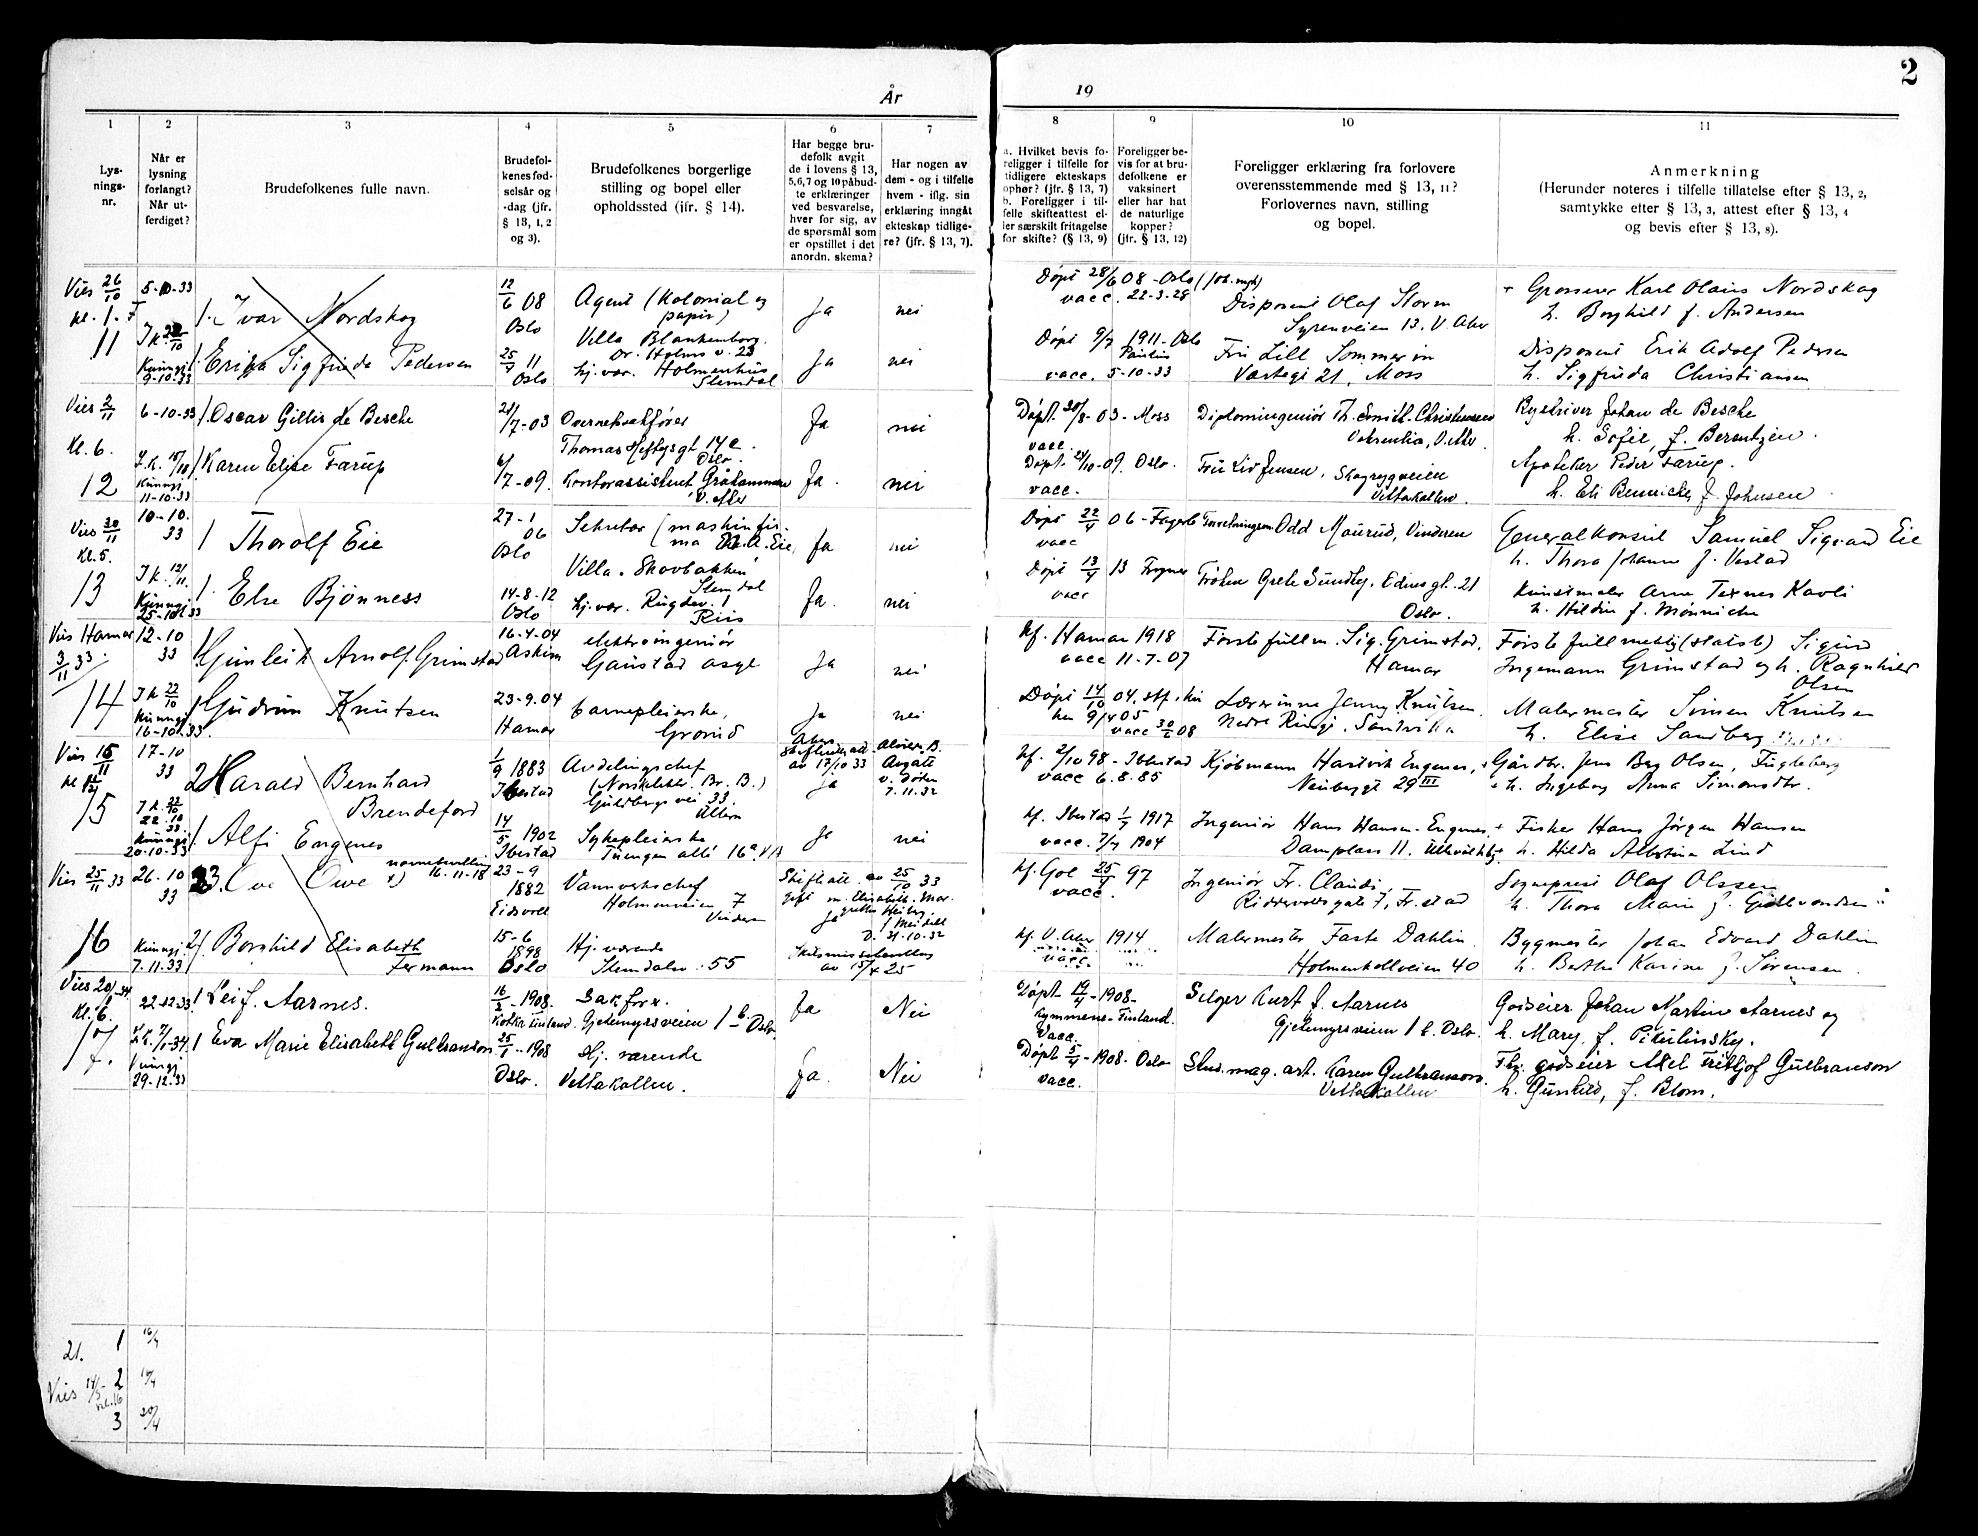 2
År
19
1
2
3
4
5
6
7
8
9
10
11
Lys-
nings-
nr.
Når er
lysning
forlangt?
Når ut-
ferdiget?
Brudefolkenes fulle navn.
Brudefol-
kenes fød-
selsår og
-dag (jfr.
§ 13, 1, 2
og 3).
Brudefolkenes borgerlige
stilling og bopel eller
opholdssted (jfr. § 14).
Har begge bru-
defolk avgit
de i lovens § 13,
5,6,7 og 10 påbud-
te erklæringer
ved besvarelse,
hver for sig, av
de spørsmål som
er opstillet i det
anordn. skema?
Har nogen av
dem - og i tilfelle
hvem - iflg. sin
erklæring inngått
ekteskap tidlige-
re? (jfr. § 13, 7).
a. Hvilket bevis fo-
religger i tilfelle for
tidligere ekteskaps
ophør? (jfr. § 13, 7)
b. Foreligger i til-
felle skifteattest el-
ler særskilt fritagelse
for skifte? (§ 13, 9)
Foreligger be-
vis for at bru-
defolkene er
vaksinert
eller har hat
de naturlige
kopper?
(jfr. § 13, 12)
Foreligger erklæring fra forlovere
overensstemmende med § 13, 11?
Forlovernes navn, stilling
og bopel.
Anmerkning
(Herunder noteres i tilfelle tillatelse efter § 13, 2,
samtykke efter § 13, 3, attest efter § 13, 4
og bevis efter § 13, 8).
Vies 26/10
11
5-10-33
Kunngj.
9-10-33
1. Ivar Nordskog
1. Erikka Sigfrida Pedersen
12/6 08
Oslo
25/7 11
Oslo
Agent (Kolonial og
papir)
Villa Blankenborg
Dr. Holms v. 23
hj. vær. Holmenhus
Slemdal
Ja
nei
Ja
nei
Døpt 28/6 08 - Oslo
vacc. 22-3-28
Døpt 9/7 1911 - Oslo
vacc. 5-10-33
Disponent Olaf Storm
Syrenveien 13, V. Aker
Fru Lill Sommerin
Vartegt 21, Moss
Grosserer Karl Olaus Nordskog
h. Borghild f. Andersen
Disponent Erik Adolf Pedersen
h. Sigfrida Christiansen
Vies 2/11
Kl. 6.
12
6-10-33
Kunngj
11-10-33
1. Oscar Gillis de Besche
1. Karen Elise Farup
21/7-03
6/7-09.
Overrettssakfører
Thomas Heftyesgt 14 c.
Oslo.
Kontorassistent Gråkammen
V. Aker
Ja
nei
Ja.
nei
Døpt 30/8-03 - Moss
vacc.
Døpt 24/10-09. Oslo.
vacc.
Diplomingeniør Th. Smith-Christensen
Voksenlia, V. Aker
Fru Liv Jensen, Skogryggveien
Vettakollen.
Rystriver Johan de Besche
h. Sofie, f. Berentzen.
Apoteker Peder Farup.
h. Eli Bennicke f. Johnsen.
Vies 30/11
Kl. 5.
13
10-10.
33
I K. 12/11.
Kunngj
25-10-33
1 Thorolf Eie
1. Else Bjønness
27-1
06
Oslo
14-8-12
Oslo
Sekretær (maskinfir-
ma Eie,
Villa Skovbakken
Slemdal
hj. vær. Rugdev. 1
Riis
Ja
nei
Ja.
nei
Døpt 22/4 06 - Fagerb
vacc
Døpt 13/4 13 Frogner
vacc
Forretningsm Odd Maurud, Vinderen
Frøken Grete Sundby, Ediesgt. 21
Oslo.
Generalkonsul Samuel Sigvard Eie
h. Thora Johanne f. Vestad
Kunstmaler Arne Texnes Kavli
h. Hildur f. Mønniche
Vies Hamar
3/11 33.
14
12-10
33
I K 22/10
Kunngj
16-10-33.
1 Gunleik Arnolf Grimstad
1 Gudrun Knutsen
16-4-04
Askim
23-9.04
Hamar
elektroingeniør
Gaustad asyl
barnepleierske,
Grorud
Ja
nei
Ja
nei
kf. Hamar 1918
vacc 11-7-07
Døpt 14/10 04.
vacc 30/6 08
Førstefullm. Sig. Grimstad,
Hamar
Lærerinne Jenny Knutsen,
Nedre Ringi, Sandvika
Første fullmektig (statsb) Sigurd
Ingemann Grimstad og h. Ragnhild
Olsen
Malermester Simen Knutsen
h. Elise Sandberg
15
17-10
33
Kunngj
20-10-33
2 Harald Bernhard
Brendeford
1. Alfi Engenes
1/9 1883
Ibestad
14/5 1902
Ibestad
Avdelingschef
(Norsk elektr. Br. B.)
Guldbergs vei 33.
Ullern
Sykepleierske
Tuengen allé 16ª, V.A
av 17/10 33
ja
v. døden
7.11.32
Ja
nei
kf. 2/10 98 - Ibestad
vacc 6.8.85
kf. Ibestad 1/7 1917
vacc. 7/7 1904
Kjøbmann Hartvik Engenes,
Neubergt 29 III
Ingeniør Hans Hansen-Engenes
Damplass 11. Ullevål hby.
Gårdbr. Jens Berg Olsen, Fugleberg
h. Ingeborg Anna Simonsdtr.
Fisker Hans Jørgen Hansen
h. Hilda Albertina Lind
Vies 25/11 33
16
26-10
33
Kunngj.
7.11.33
Ove Owe x)
16-11-18
Borghild Elisabeth
Fermann
23-9
1882
Eidsvoll
15-6
1898
Oslo
Vannverkschef
Holmenveien 7
Vinderen
Hj. værende
Slemdalsv. 55
Skifteatt. av 25/10 33
Ja
D. 31-10-32
Skilsmissebevilling
kf. Gol 25/4 97
vacc.
kf. V. Aker 1914
vacc.
Ingeniør Fr. Claudi,
Riddervoldsgate 7, Fr.stad
Malermester Faste Dahlin
Holmenkollveien 40
Sogneprest Olaf Olssen
h. Thora Marie f.
Bygmester Johan Edvard Dahlin
h. Berthe Karine f. Sørensen
Kl. 6.
17.
22-12-33
29-12-33
1 Leif. Aarnes.
1 Eva Marie Elisabeth Gulbranson
16/2-1908.
Kotka Finland.
25/1-1908
Oslo.
Sakfører.
Gjetemyrsveien 1 b. Oslo
Hj. værende
Vettakollen.
Ja
Nei
Ja.
Nei
Døpt 19/4-1908-
Kymmene-Finland.
Vacc.
Døpt 5/4-1908. Oslo
Vacc.
Selger Kurt f. Aarnes
Gjetemyrsveien 1 b. Oslo.
Stud. mag. art. Karen Gulbranson.
Vettakollen
Godseier Johan Martin Aarnes og
h. Mary f. Pikulinsky.
Fhv. godseier Axel Fridtjof Gulbranson
h. Gunhild, f. Blom.
21.
1
16/4
Vies
2
3
20/4